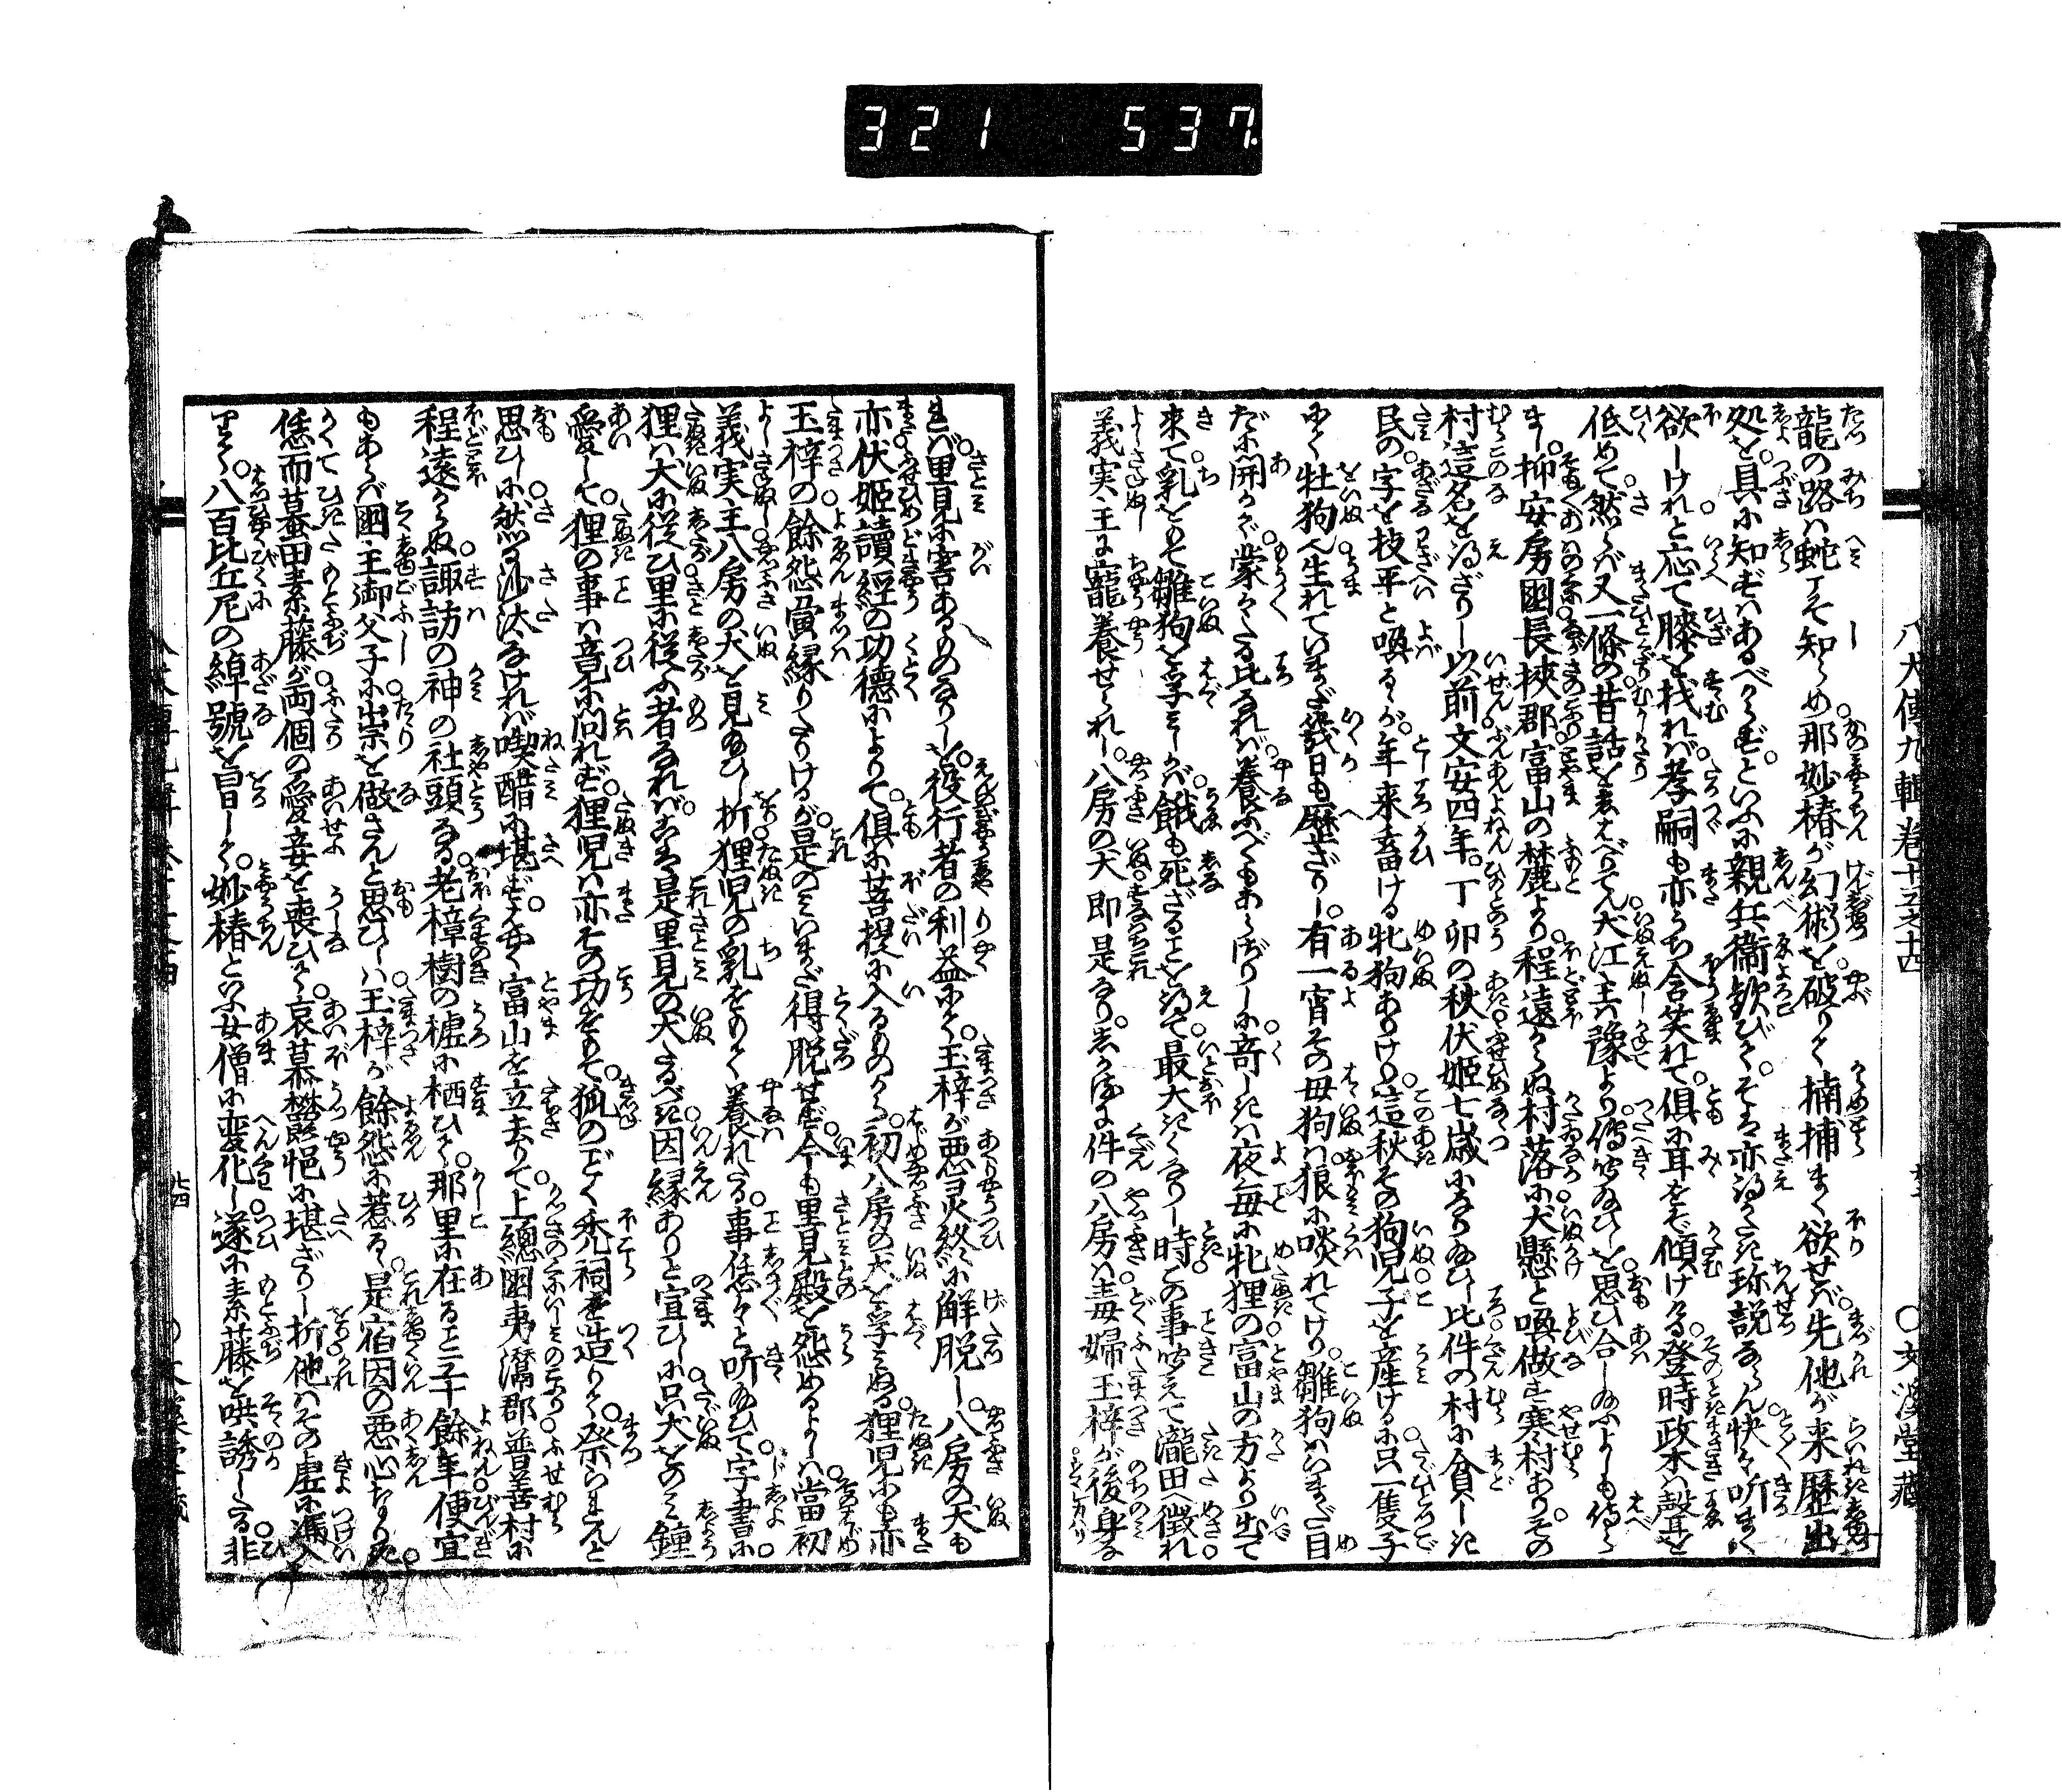 321 537
八犬傳九輯巻十五之十四
○文溪堂藏
龍の路ハ蛇こそ知らめ那妙椿が幻術を破りて捕捕まく欲せバ先他が来歴出
処を具に知ずハあるべからずといふに親兵衛歓びてそハ亦得かたき珎説ならん快々听まく
欲しけれと応て膝を找れバ孝嗣も亦うち含笑れて倶に耳をぞ傾ける登時政木ハ聲を
低めて然らバ又一條の昔話を者べりてん犬江主ハ豫より傳聞給ひしを思ひ合し給ふよしも侍ら
まし抑安房國長挾郡富山の麓より程遠からぬ村落に犬懸と喚做す寒村ありその
村這名を得ざりし以前文安四年丁卯の秋伏姫七歳になり給ひし比件の村に貧しき
民の字を技平と喚るゝが年来畜ける牝狗ありけり這秋その狗児子を産けるに只一隻子
にて牡狗也生れていまだ幾日も歴ざりし有一宵その母狗ハ狼に啖れてけり雛狗ハいまだ目
だに開かで蒙々たる比なれバ養ふべくもあらざりしに奇しきハ夜毎に牝狸の富山の方より出て
来て乳をもて雛狗を孚みしかバ餓も死ざることを得て最大きくなりし時この事聞えて瀧田へ徴れ
義実主に寵養せられし八房の犬即是なりしかるに件の八房ハ毒婦玉梓が後身な
れバ里見に害あるものなりしを役行者の利益にて玉梓が悪灵終に解脱し八房の犬も
亦伏姫讀經の功德によりて倶に菩提に入るものから初八房の犬を孚みぬる狸児にも亦
玉梓の餘怨夤縁りたりけるが是のミいまだ得脱せず今も里見殿を怨めるよしハ當初
義実主八房の犬を見給ひし折狸児の乳をもて養れたる事恁々と听給ひて字書に
狸ハ犬に從ひ里に從ふ者なれバこハ是里見の犬たるべき因縁ありと宣ひしに只犬をのミ鐘
愛して狸の事ハ竟に問れず狸児ハ亦その功をもて狐のごとく禿祠を造りて祭られんと
思ひしに然る沙汰なけれバ喫醋に堪ず安く富山を立去りて上總國夷灊郡普善村に
程遠からぬ諏訪の神の社頭なる老樟樹の樝に栖ひて那里に在ること三十餘年便宜
もあらバ國主御父子に祟を做さんと思ひしハ玉梓が餘怨に惹るゝ是宿因の悪心なりき
恁而蟇田素藤が両個の愛妾を喪ひて哀慕鬱悒に堪ざりし折他ハその虚に馮入
りて八百比丘尼の綽號を冒して妙椿といふ女僧に変化し遂に素藤を哄誘したる非